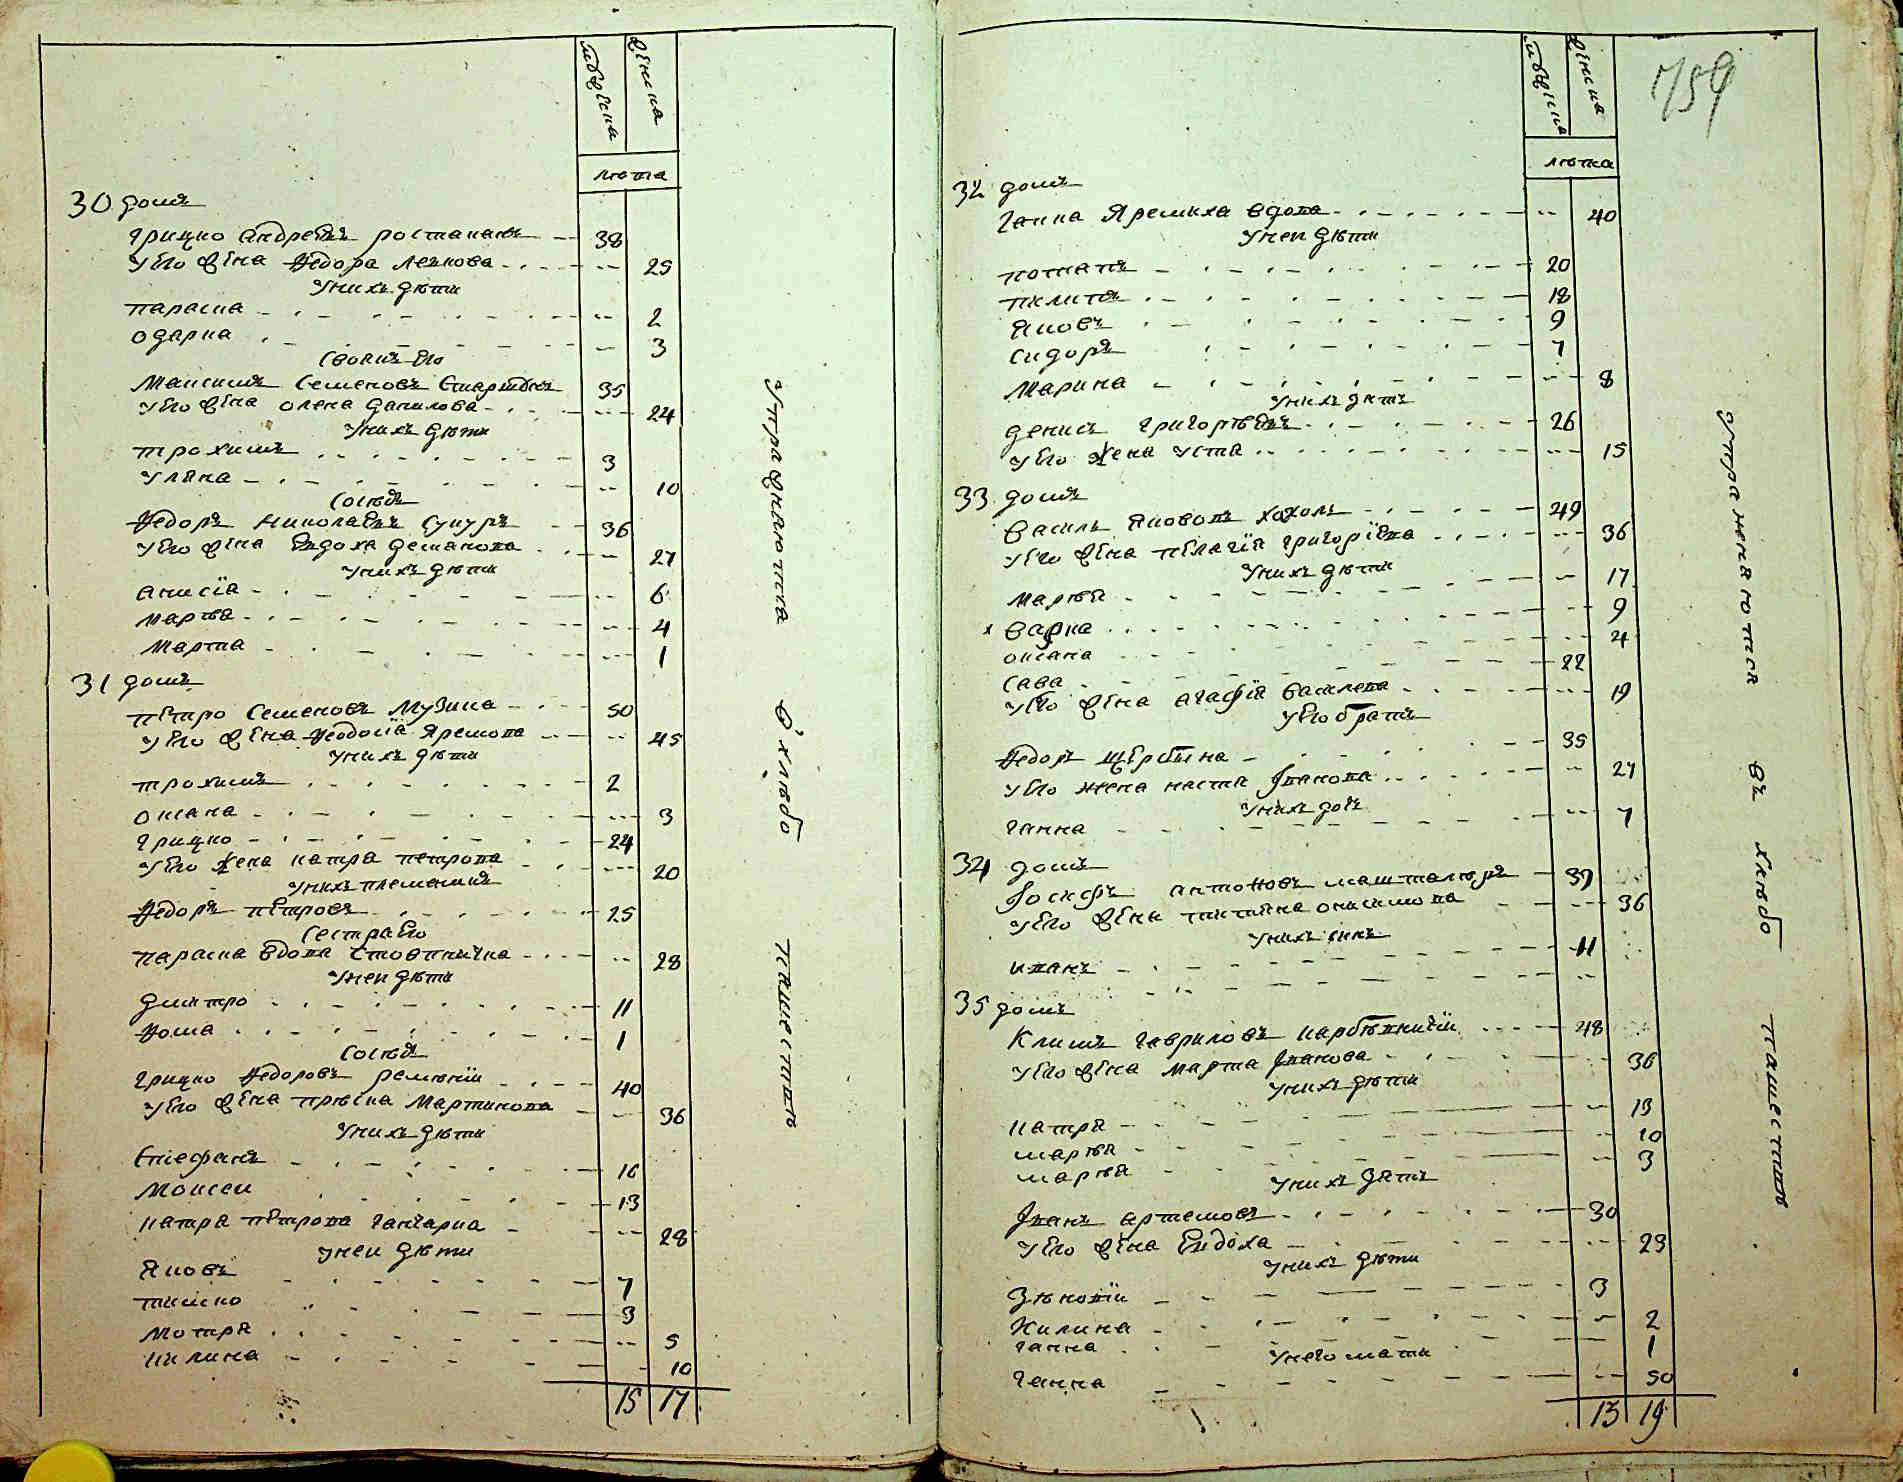 мужеска женска
лѣта
30 домъ
грицко андрѣевъ ростакане 38
у Его жена Ѳедора Левкова 25
У них дѣти
параска 2
одарка 3
своякъ Его
Максимъ семеновъ 35
у Его жена олена данилова 24
У нихъ дѣти
трохимъ 3
уляна 10
Сосѣдъ
Ѳедоръ николаевъ сукуръ 36
у Его жена Евдоха демянова 27
У нихъ дѣти
анисїа 6
марѳа 4
марта 1
31 домъ
пѣтро семеновъ Музика 50
у Его жена Ѳеодосїа яремова 45
У нихъ дѣти
трохимъ 2
оксана 3
грицко 24
у Его жена катря петрова 20
У нихъ племяникъ
Ѳедоръ пѣтровъ 25
Сестра Его
параска вдова 28
У неи дѣти
дмитро 11
Ѳома 1
Сосѣдъ
грицко Ѳедоровъ 40
у Его жена прѣска Мартинова 36
У нихъ дѣти
Стефанъ 16
Моисеи 13
катря пѣтрова ганчарка 28
У неи дѣти
яковъ 7
тимко 3
Мотря 5
килина 10
15 17
Упражняютца
в хлѣбо
пашестве
159
мужеска женска
лѣта
32 домъ
ганна яремиха вдова 40
У неи дѣти
потапъ 20
пилипъ 18
яковъ 9
сидоръ 7
Марина 8
У нихъ зять
денисъ григорьевъ 26
у Его жена уста 15
33 домъ
василь якововъ хохолъ 49
у Его жена пѣлагїя григорїева 36
У нихъ дѣти
марѳа 17
х варка 9
оксана 4
сава 22
у Его жена агафїя василева 19
у Его братъ
Ѳедоръ щербина 35
у Его жена наста Іванова 27
У нихъ дочь
ганна 7
34 домъ
Іосифъ антоновъ машталѣръ 39
у Его жена татияна онисимова 36
У нихъ синъ
иванъ 11
35 домъ
Климъ гавриловъ 48
у Его жена марта Іванова 36
У нихъ дѣти
катря 13
марѳа 10
марѳа 3
У нихъ зять
Іванъ артемовъ 30
у Его жена Евдоха 23
У нихъ дѣти
зѣновїи 3
Килина 2
ганна 1
У него мати
ганна 50
13 19
упражняютця
въ хлѣбо
пашествѣ